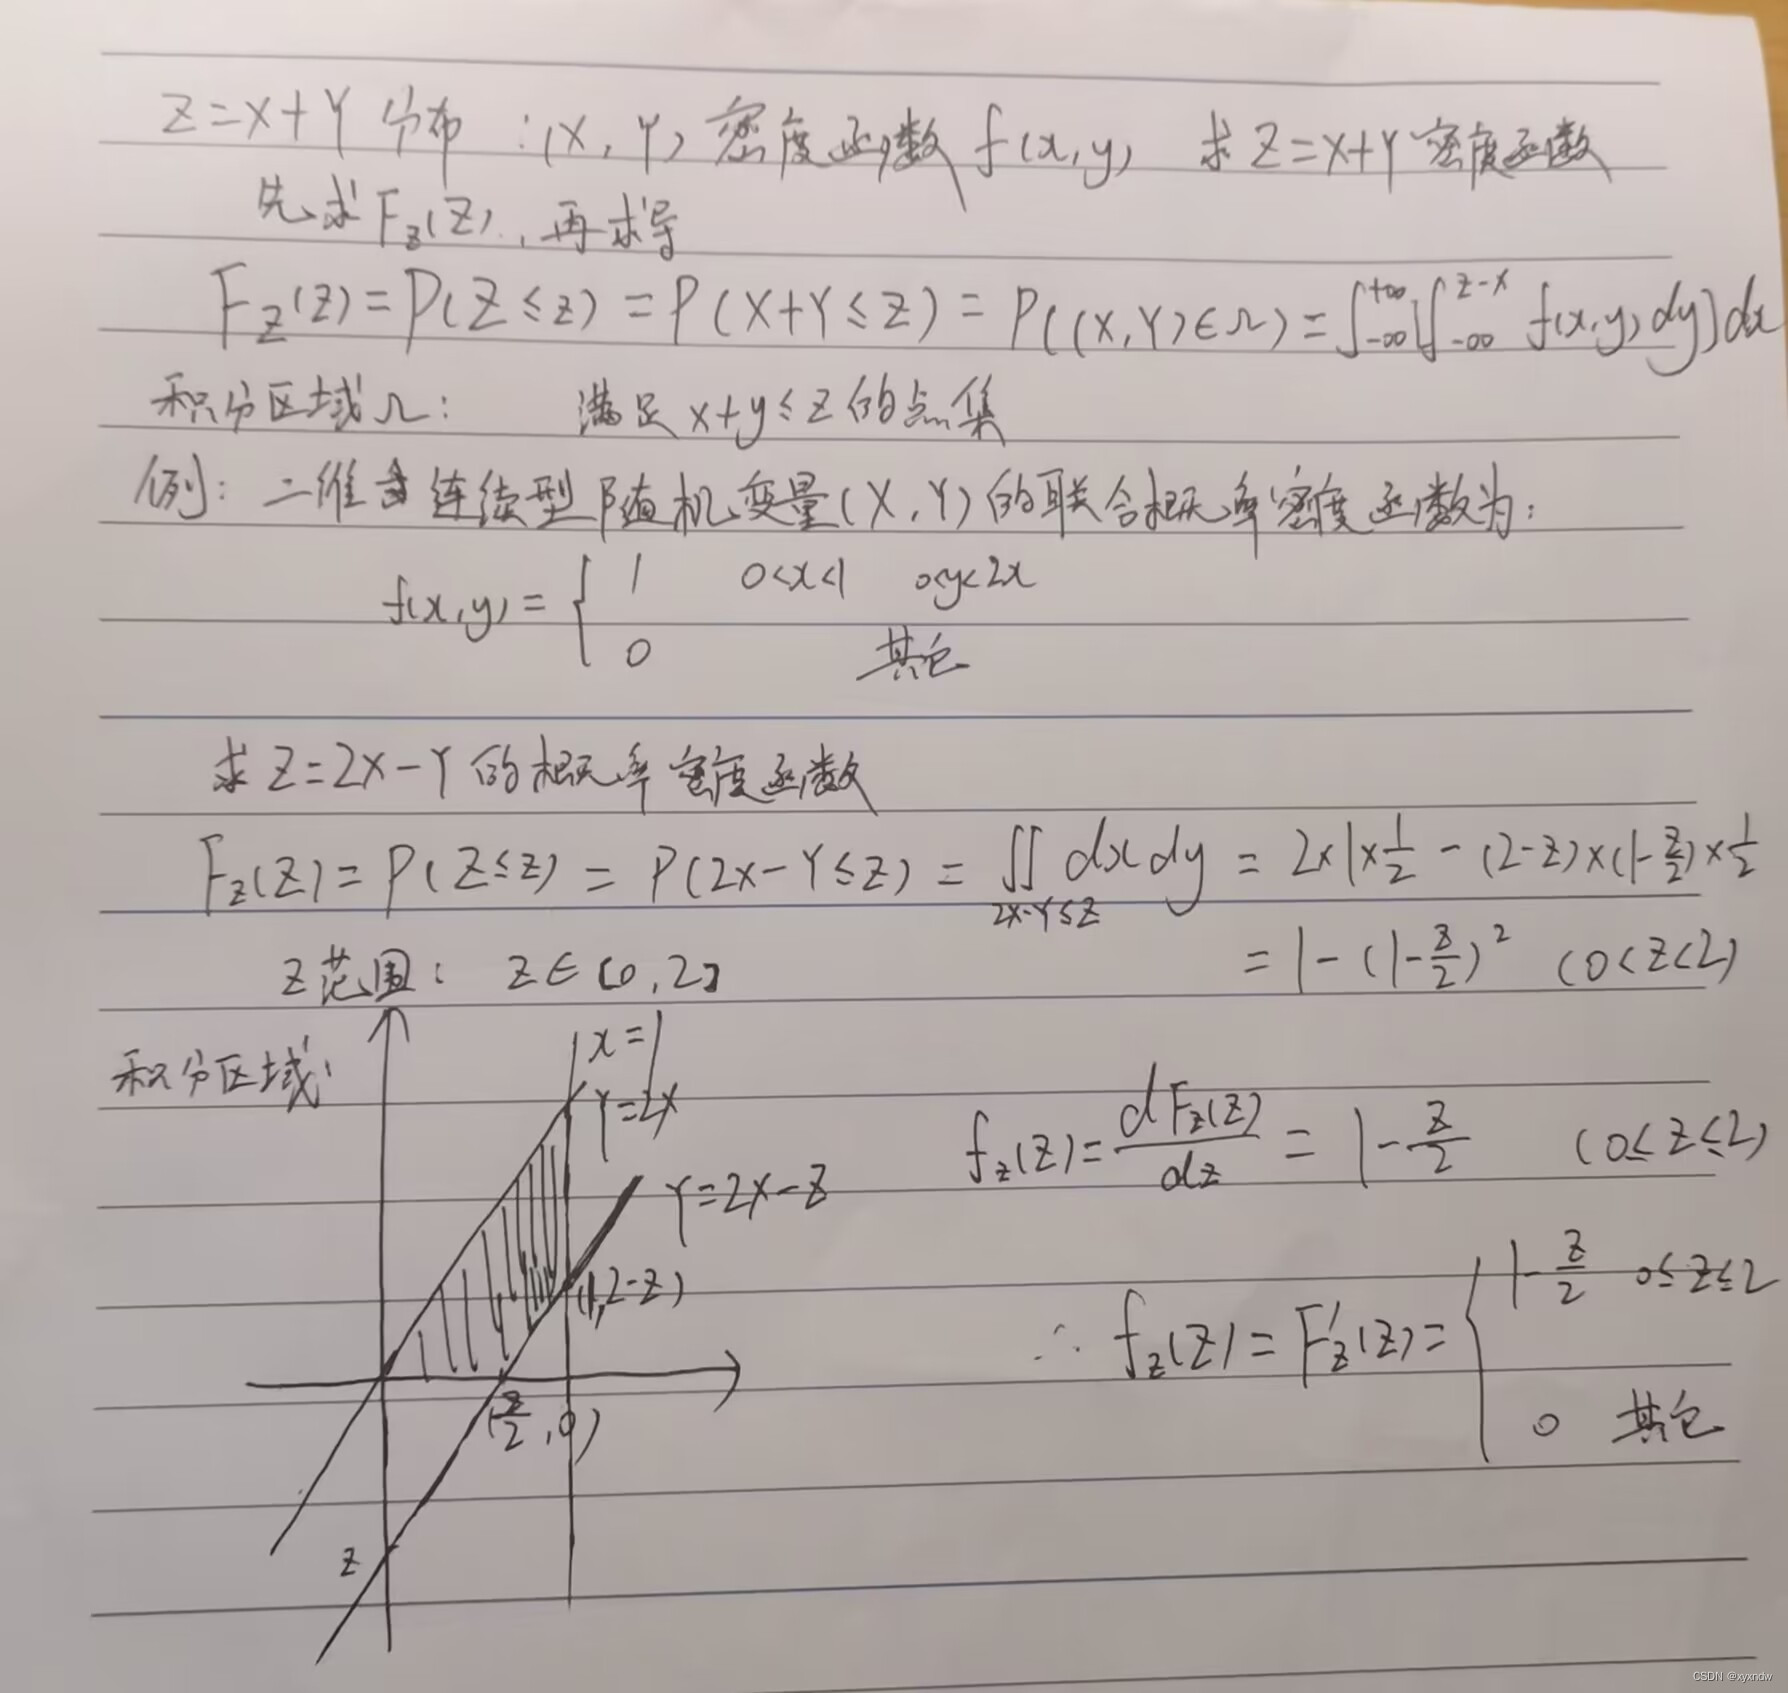 Z=X+Y 分布:(X,Y) 密度函数 f(x,y) 求 Z=X+Y 密度函数
先求 F_Z(Z),再求导
F_Z(Z)=P(Z≤z)=P(X+Y≤Z)=P((X,Y)∈Ω)=∫_{-∞}^{+∞}[∫_{-∞}^{z-x} f(x,y)dy]dx
积分区域Ω: 满足 x+y≤z 的点集
例: 二维 连续型随机变量(X,Y)的联合概率密度函数为:
f(x,y)={ 1 0<x<1 0<y<2x
0 其它
求 Z=2X-Y 的概率密度函数
F_Z(Z)=P(Z≤z)=P(2X-Y≤z)=∬_{2X-Y≤Z} dxdy = 2×1×1/2 - (2-z)×(1-z/2)×1/2
=1-(1-z/2)² (0<z<2)
Z范围: z∈[0,2]
积分区域:
x=1
Y=2X
Y=2X-Z
(1,2-z)
(z/2,0)
z
f_Z(Z)=dF_Z(Z)/dz=1-z/2 (0≤z≤2)
∴ f_Z(Z)=F'_Z(Z)={ 1-z/2 0≤z≤2
0 其它
CSDN @xyxndw